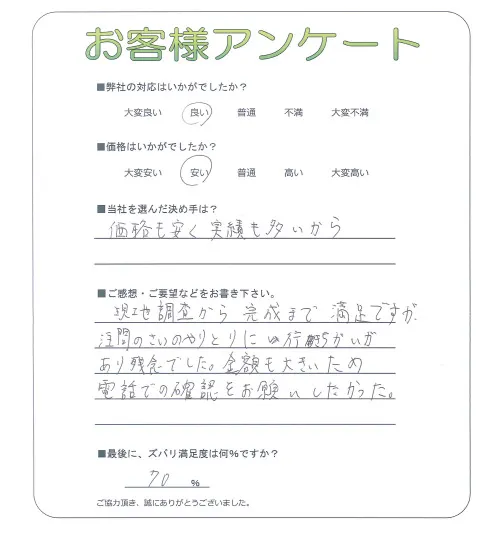 お客様アンケート
■弊社の対応はいかがでしたか？
大変良い 良い 普通 不満 大変不満
■価格はいかがでしたか？
大変安い 安い 普通 高い 大変高い
■当社を選んだ決め手は？
価格も安く実績も多いから
■ご感想・ご要望などをお書き下さい。
現地調査から完成まで満足ですが
注問のさいのやりとりに 行きちがいが
あり残念でした。金額も大きいため
電話での確認をお願いしたかった。
■最後に、ズバリ満足度は何％ですか？
70 ％
ご協力頂き、誠にありがとうございました。